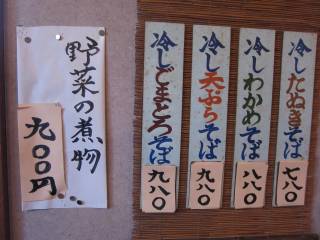 冷したぬきそば
七八〇
冷しわかめそば
八八〇
冷し天ぷらそば
九八〇
冷しごまとろそば
九八〇
野菜の煮物
九〇〇円